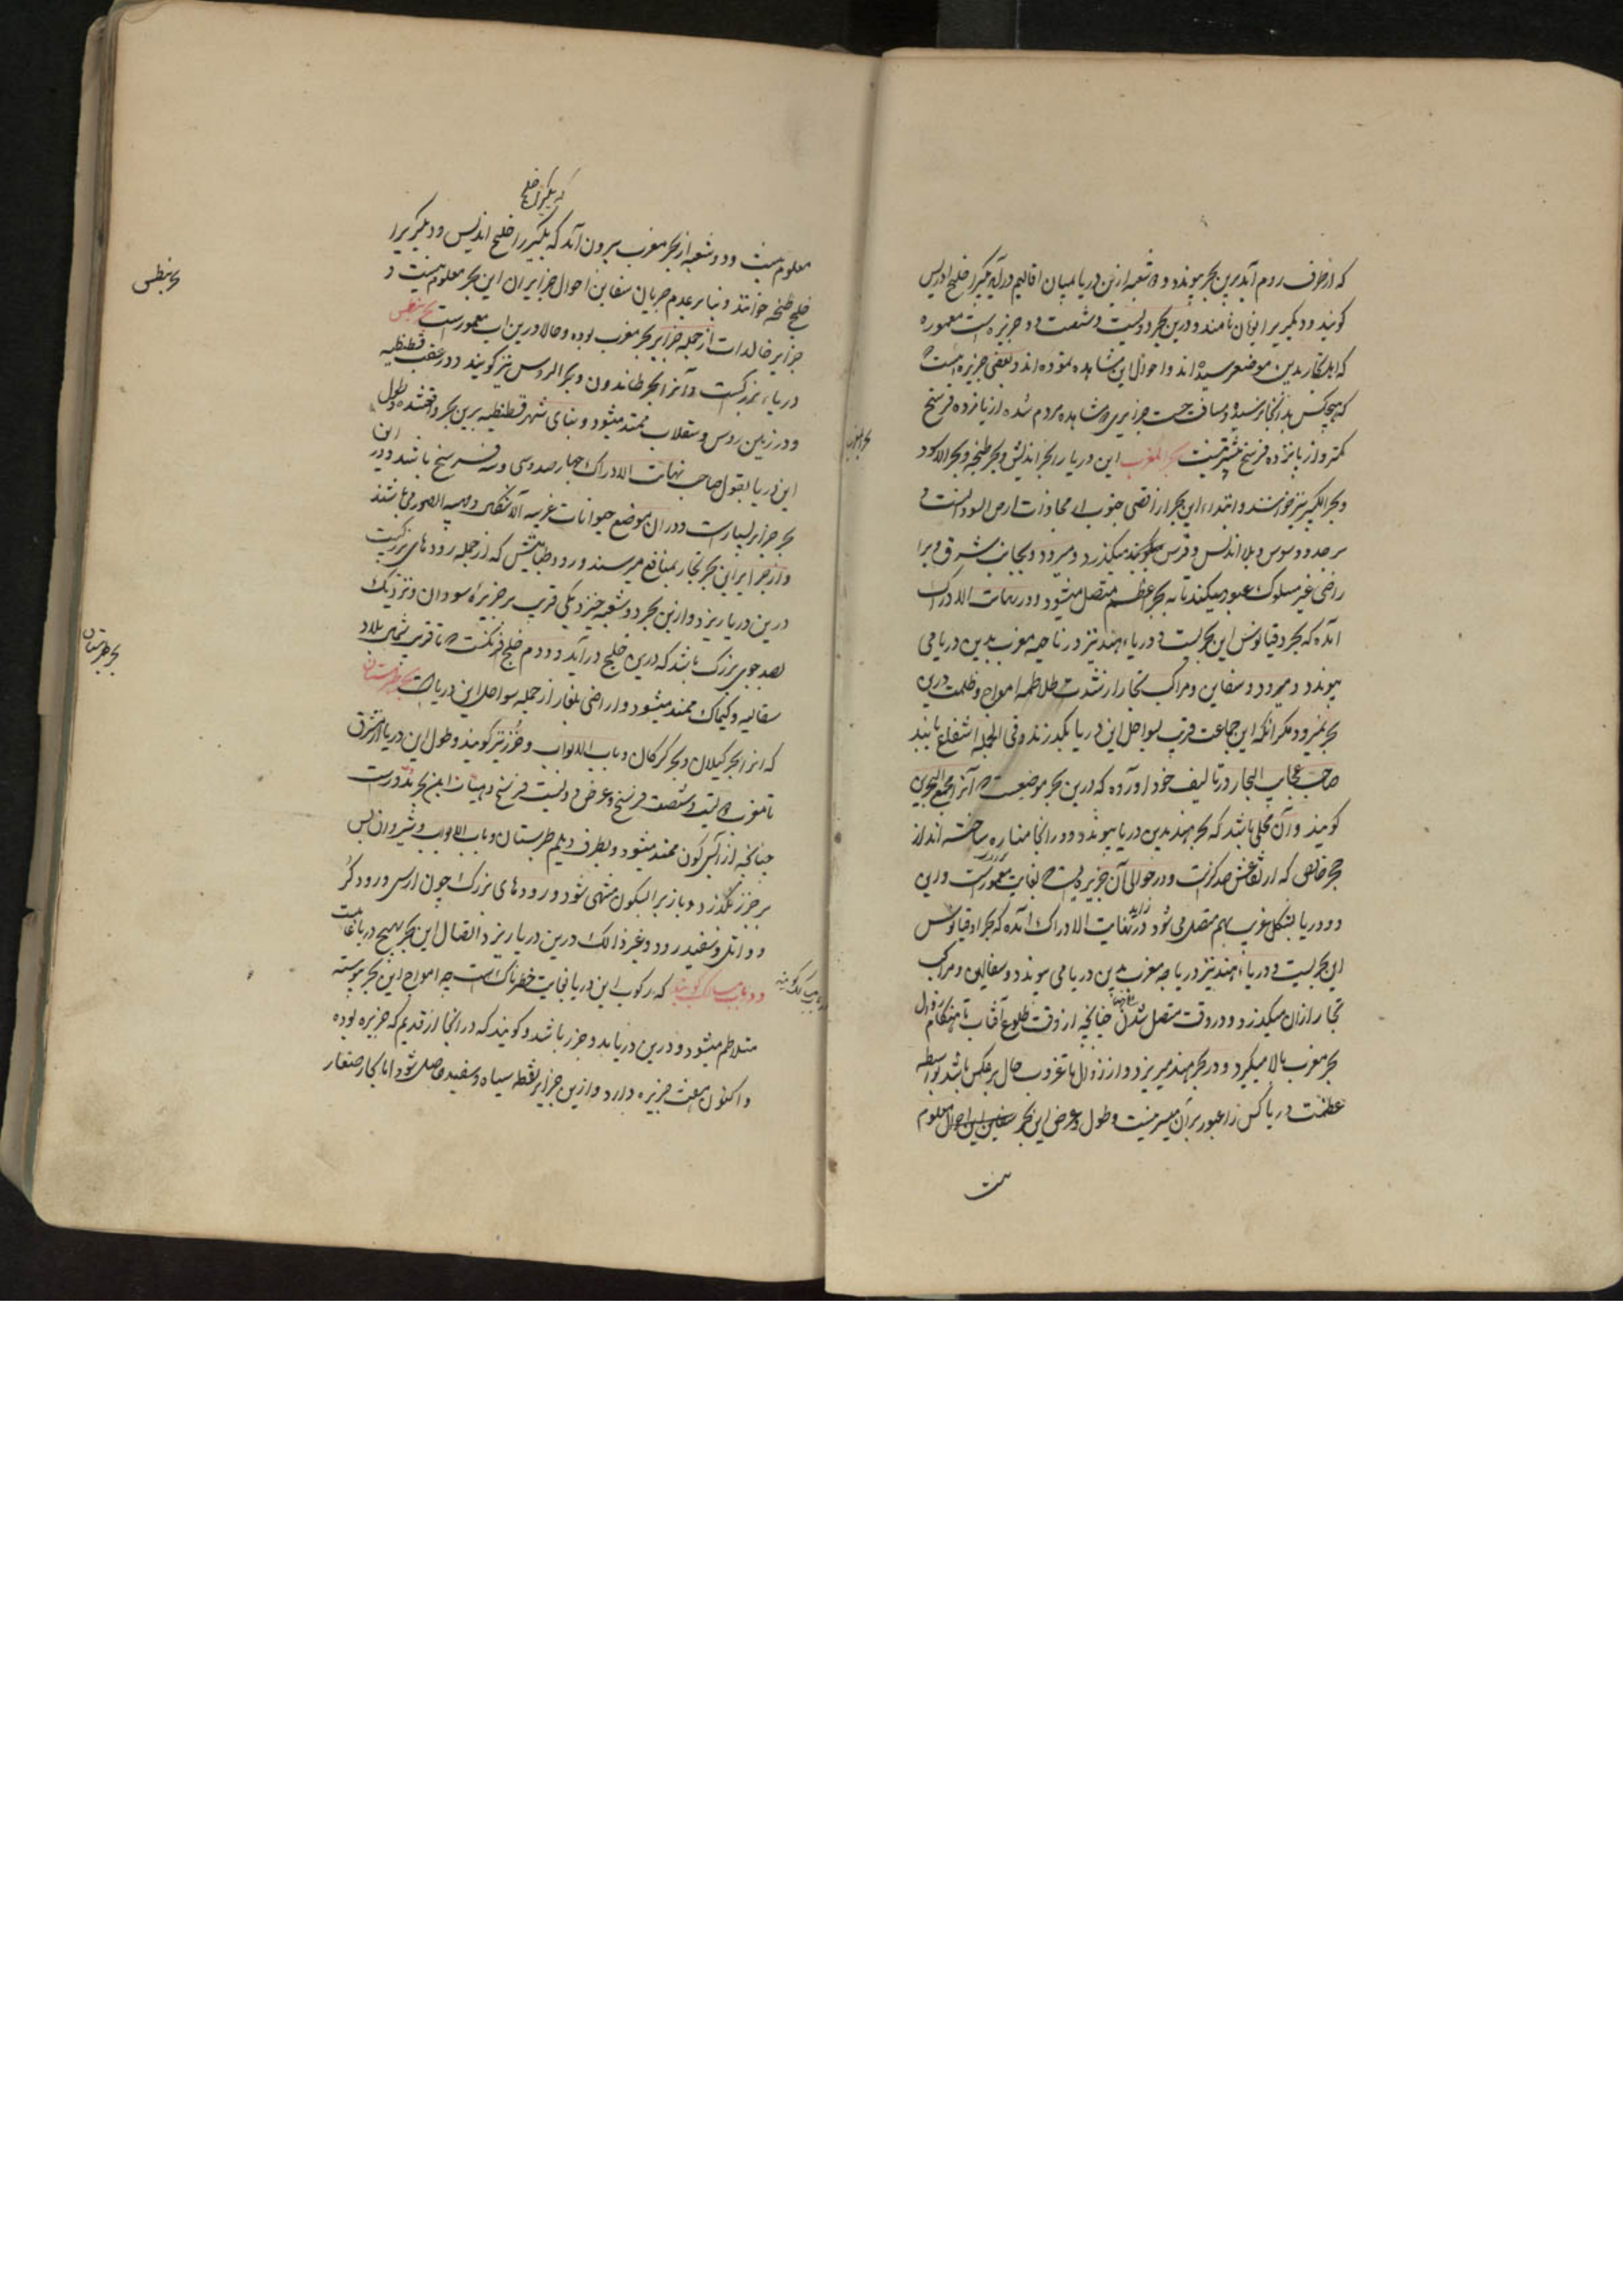 که از طرف روم آید برین بحر پیوندد و دو شعبه ازین دریا بمیان اقالیم درآید یکیرا خلیج ادریس
کویند و دیکریرا نامند و درین بحر دویست و شصت و دو جزیره است معموره
که اهل تجار بدین موضع رسیده اند و احوال این مشاهده نموده اند و بعضی جزیره است
که هیچکس بدانجا نرسیده و مسافت جزایری که مشاهده مردم شده از پانزده فرسخ
کمتر و از پانزده فرسخ بیشتر نیست بحر المغرب این دریا را بحر اندلس و بحر طنجه و بحر الاسود
بحر المغرب
و بحر اخضر نیز خوانند و ابتداء این بحر از اقصی جنوب از محاذات ارض السودانست و
بر حدود سوس و بلاد اندلس و قرس میکذرد و میرود و بجانب شرق و بر ا
راضی غیر مسلوک عبور میکند تا به بحر اعظم متصل میشود و در نهایت الادراک
آمده که بحر دقیانوس این بحر است و دریاء هند نیز در ناحیه مغرب بدین دریا می
پیوندد و میرود و سفاین و مراکب تجار از شدت تلاطم امواج و ظلمت درین
بحر نمیرود مکر آنکه این جماعت قریب بسواحل این دریا بگذرند و فی الجمله انتفاع یابند
صاحب عجایب البحار در تالیف خود آورده که درین بحر موضعیست که آنرا مجمع البحرین
کویند و آن محلی باشد که بحر هند بدین دریا پیوندد و در آنجا مناره ساخته اند از
حجر خالص که ارتفاعش صد کزست و در حوالی آن جزیره ایست بغایت معمور است و این
دو دریا بشکل غریب بهم متصل می شود و در نهایت الادراک آمده که بحر اوقیانوس
این بحر است و دریاء هند نیز در ناحیه مغرب بدین دریا می پیوندد و سفاین و مراکب
تجار از آن میکذرد و در وقت متصل شدن چنانچه از وقت طلوع آفتاب تا هنکام زوال
بحر مغرب بالا میکیرد و در بحر هند میریزد و از زوال تا غروب حال برعکس باشد بواسطه
عظمت دریا کس را عبور بر آن میسر نیست و طول و عرض این بحر معلوم
نیست
که یکیرا خلیج
معلوم نیست و دو شعبه از بحر مغرب بیرون آید که یکیرا خلیج اندلس و دیکریرا
خلیج طنجه خوانند و بنا بر عدم جریان سفاین احوال جزایر آن این بحر معلوم نیست و
جزایر خالدات از جمله جزایر بحر مغرب بوده و حالا درین آب مغمورست بحر بنطس
بحر بنطس
دریاء بزرکست و آنرا بحر طاندون و بحر الروس نیز کویند و در عقب قسطنطنیه
و در زمین روس و سقلاب ممتد میشود و بنای شهر قسطنطنیه برین بحر واقعشده و طول
این دریا بقول صاحب نهایت الادراک چهار صد و سی و سه فرسخ باشد و در این
بحر جزایر بسیارست و در آن موضع حیوانات غریبه الاشکال و مهیبه الصور می باشند
و از جزایر این بحر تجار بمنافع میرسند و رود طنابیش که از جمله رودهای بزرکست
درین دریا ریزد و ازین بحر دو شعبه خیزد یکی قریب بر جزیرهٔ سودان و نزدیک
بصد جوی بزرک باشد که درین خلیج درآید و دوم خلیج افرنکست که تا قریب شمالی بلاد
سقالبه و کیماک ممتد میشود و اراضی بلغار از جمله سواحل این دریاست بحر طبرستان
بحر طبرستان
که آنرا بحر کیلان و بحر کرکان و باب الابواب و خزر نیز کویند و طول این دریا از مشرق
تا مغرب دویست و شصت فرسخ و عرض دویست فرسخ و هیئات این بحر مدورست
چنانچه از آبسکون ممتد میشود و بطرف دیلم طبرستان و باب الابواب و شیروان پس
بر خزر بگذرد و باز بر آبسکون منتهی شود و رودهای بزرک چون ارس و رود کر
و اتل و سفیدرود و غیر ذالک درین دریا ریزد اتصال این بحر بهیچ دریا نیست
و ارباب مسالک کویند که رکوب این دریا بغایت خطرناکست چه امواج این بحر پیوسته
و ارباب مسالک کویند
متلاطم میشود و درین دریا مد و جزر باشد و کویند که در آنجا از قدیم که جزیره بوده
و اکنون هفت جزیره دارد و ازین جزایر نفط سیاه و سفید حاصل شود اما بحار صغار